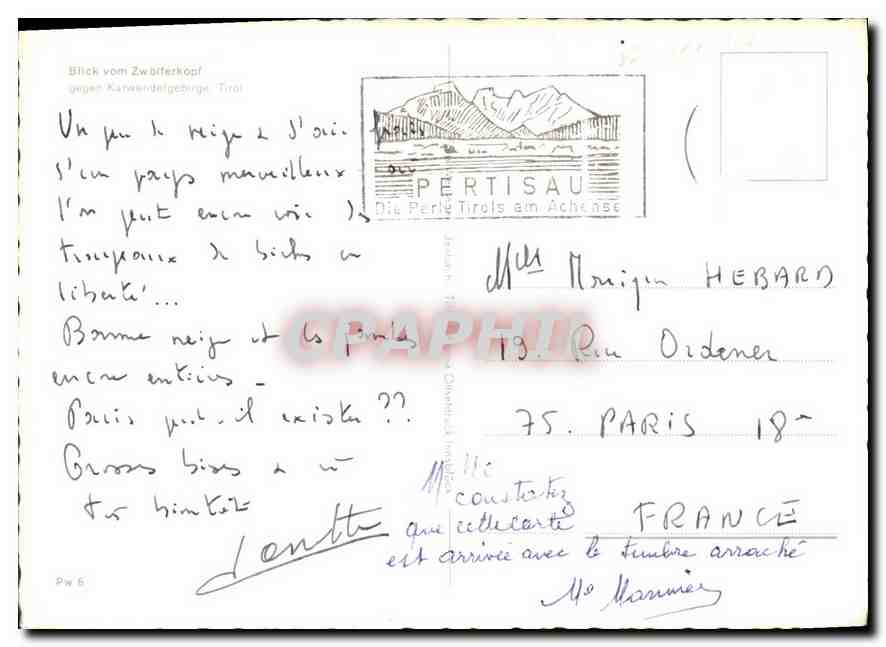 Blick vom Zwölferkopf
gegen Karwendelgebirge, Tirol
Un peu de neige &
d'un pays merveilleux où
l'on peut encore voir des
troupeaux de biches en
liberté...
Bonne neige et les jambes
encore entières -
Paris peut-il exister ??
Grosses bises & à
très bientôt
Pw 6
PERTISAU
Die Perle Tirols am Achensee
CPAPHIL
Melle Monique HEBARD
19. Rue Ordener
75. PARIS 18e
FRANCE
Mlle
constatez
que cette carte
est arrivée avec le timbre arraché